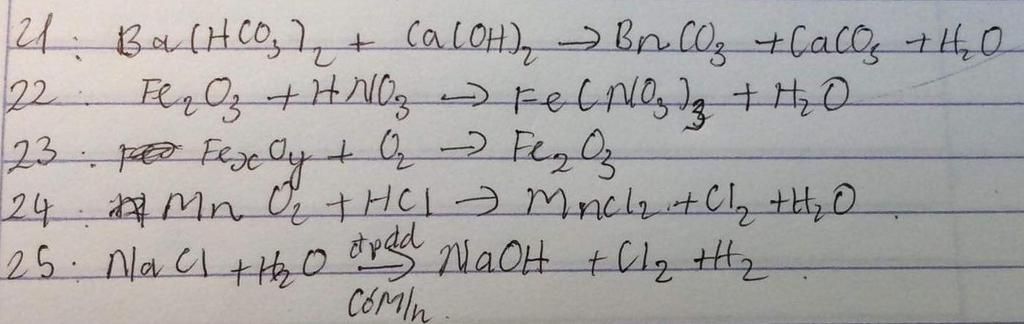 21. Ba(HCO₃)₂ + Ca(OH)₂ → BnCO₃ + CaCO₃ + H₂O
22. Fe₂O₃ + HNO₃ → Fe(NO₃)₃ + H₂O
23. FexOy + O₂ → Fe₂O₃
24. MnO₂ + HCl → MnCl₂ + Cl₂ + H₂O
25. NaCl + H₂O đpdd→ NaOH + Cl₂ + H₂
có M/n.